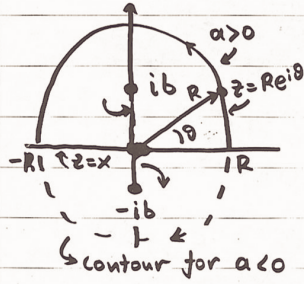 a>0
ib
R
z=Re^iθ
θ
-R
z=x
R
-ib
contour for a<0